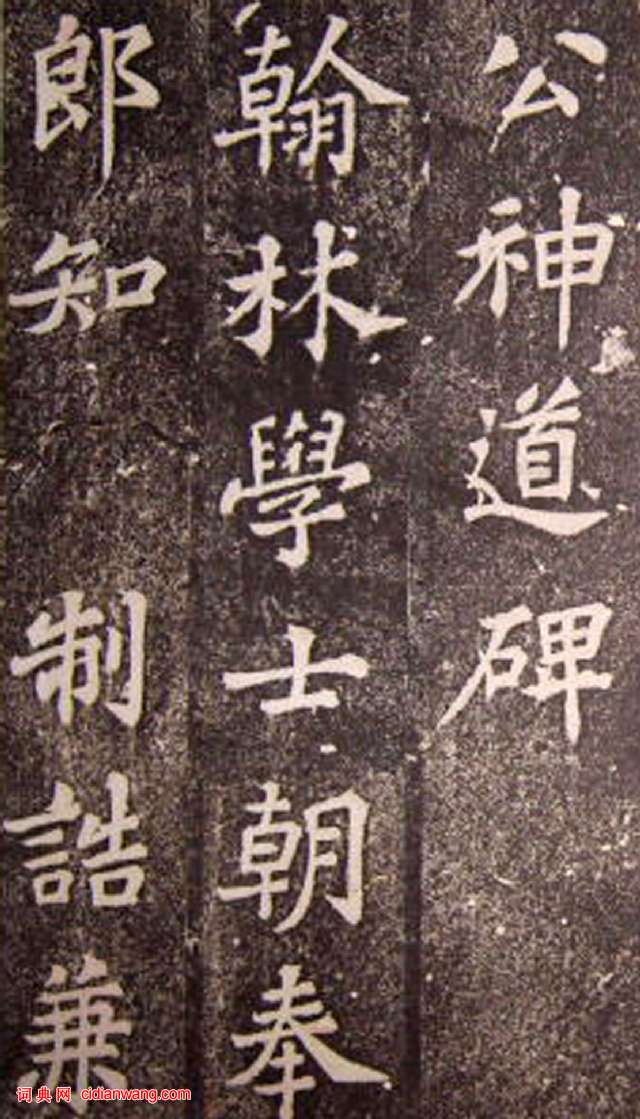 公神道碑
翰林學士朝奉
郎知 制誥兼
词典网 cidianwang.com